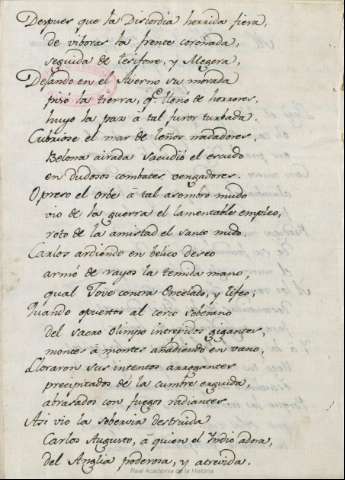 Despues que la Discordia horrida fiera,
de viboras la frente coronada,
seguida de Tesifone, y Megera,
Dejando en el Averno su morada
pisó la tierra, q.e llenó de horrores,
huyo la paz á tal furor turbada.
Cubriose el mar de leños nadadores,
Belona airada sacudió el escudo
en dudosos combates vengadores.
Opreso el orbe á tal asombro mudo
vio de la guerra el lamentable empleo,
roto de la amistad el santo nudo.
Carlos ardiendo en bélico deseo
armó de rayos la temida mano,
qual Jove contra Encelado, y Tifeo;
Quando opuestos al cerco soberano
del sacro olimpo intrepidos gigantes,
montes á montes añadiendo en vano,
Lloraron sus intentos arrogantes
precipitados de la cumbre erguida,
abrasados con fuegos radiantes.
Asi vio la soberbia destruida
Carlos Augusto, á quien el Indio adora,
del Anglia poderosa, y atrevida.
Real Academia de la Historia